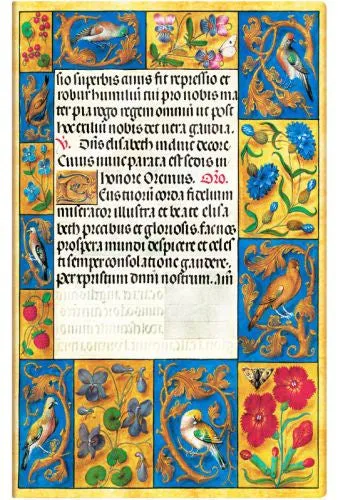 sio superbis cuius fit repressio et
robur humiliū tui pro nobis ma
ter pia rogo regem omniū ut post
hoc exiliū nobis det vera gaudia.
V. Dn̄s elisabeth induc decore.
Cuius nunc parata est sedis in
honore Oremus. Or̄o.
Deus tuorū corda fidelium
miserator illustra et beate elisa
beth precibus et gloriosis. fac nos
prospera mundi despicere et celes
ti semper consolatione gaudere.
per xpistum dnm̄ nostrum. am̄